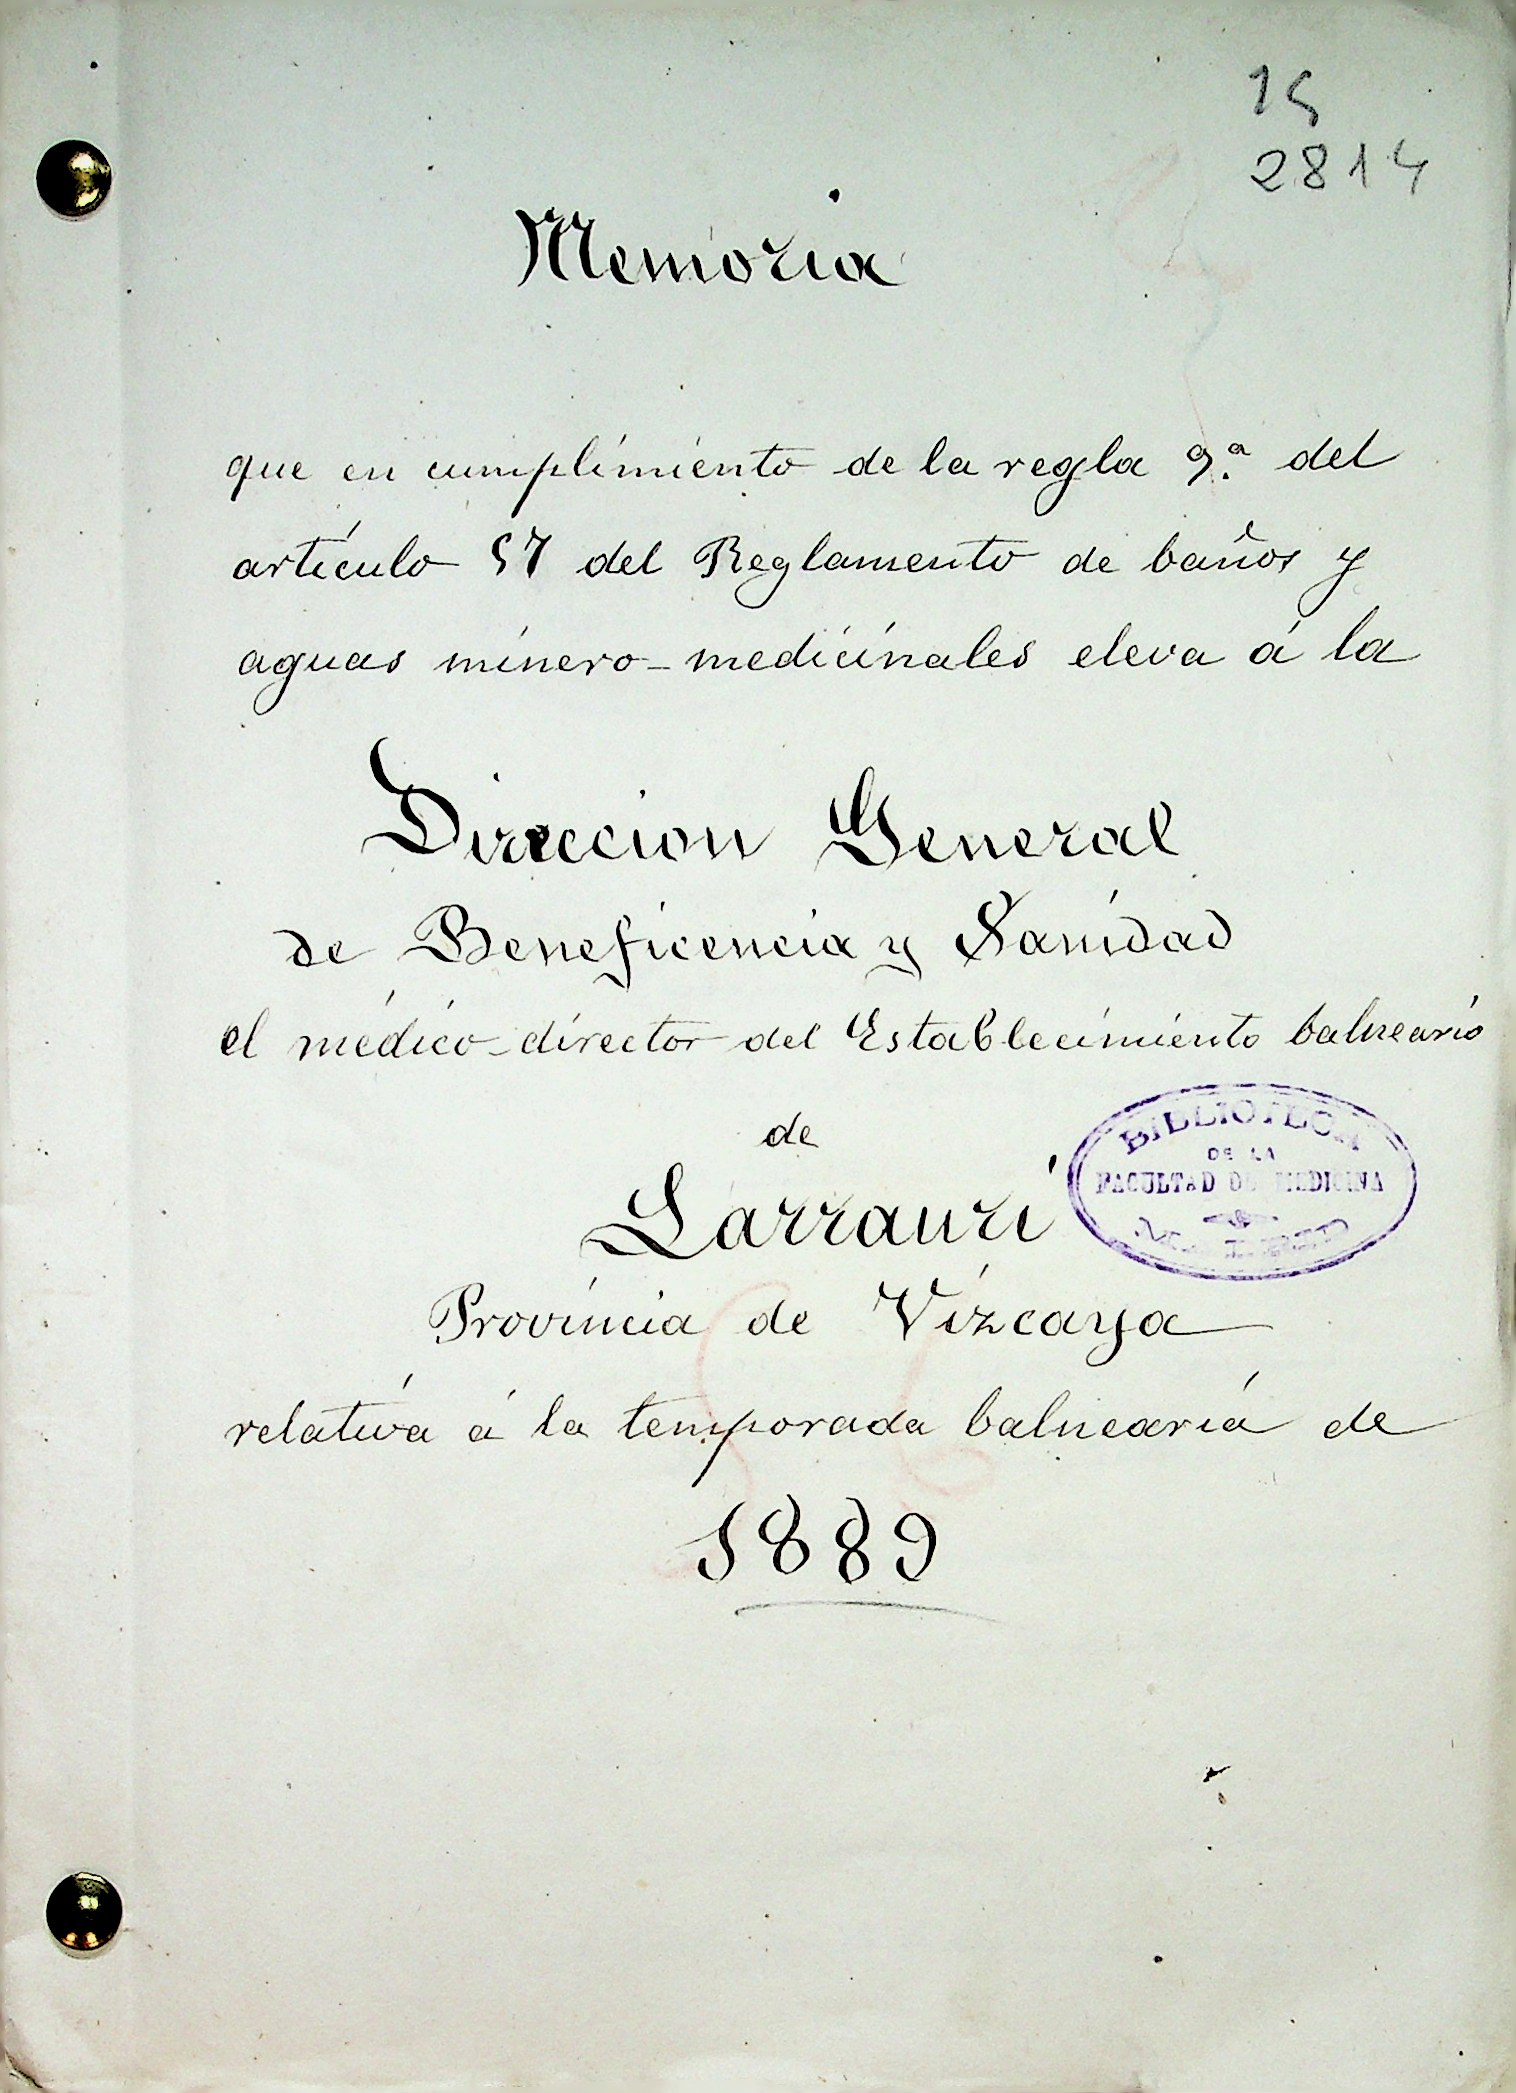 15
2814
Memoria
que en cumplimiento de la regla 9.ª del
artículo 57 del Reglamento de baños y
aguas minero-medicinales eleva á la
Direccion General
de Beneficencia y Sanidad
el médico-director del Establecimiento balneario
de
Larrauri
BIBLIOTECA
DE LA
FACULTAD DE MEDICINA
Provincia de Vizcaya
relativa á la temporada balnearia de
1889